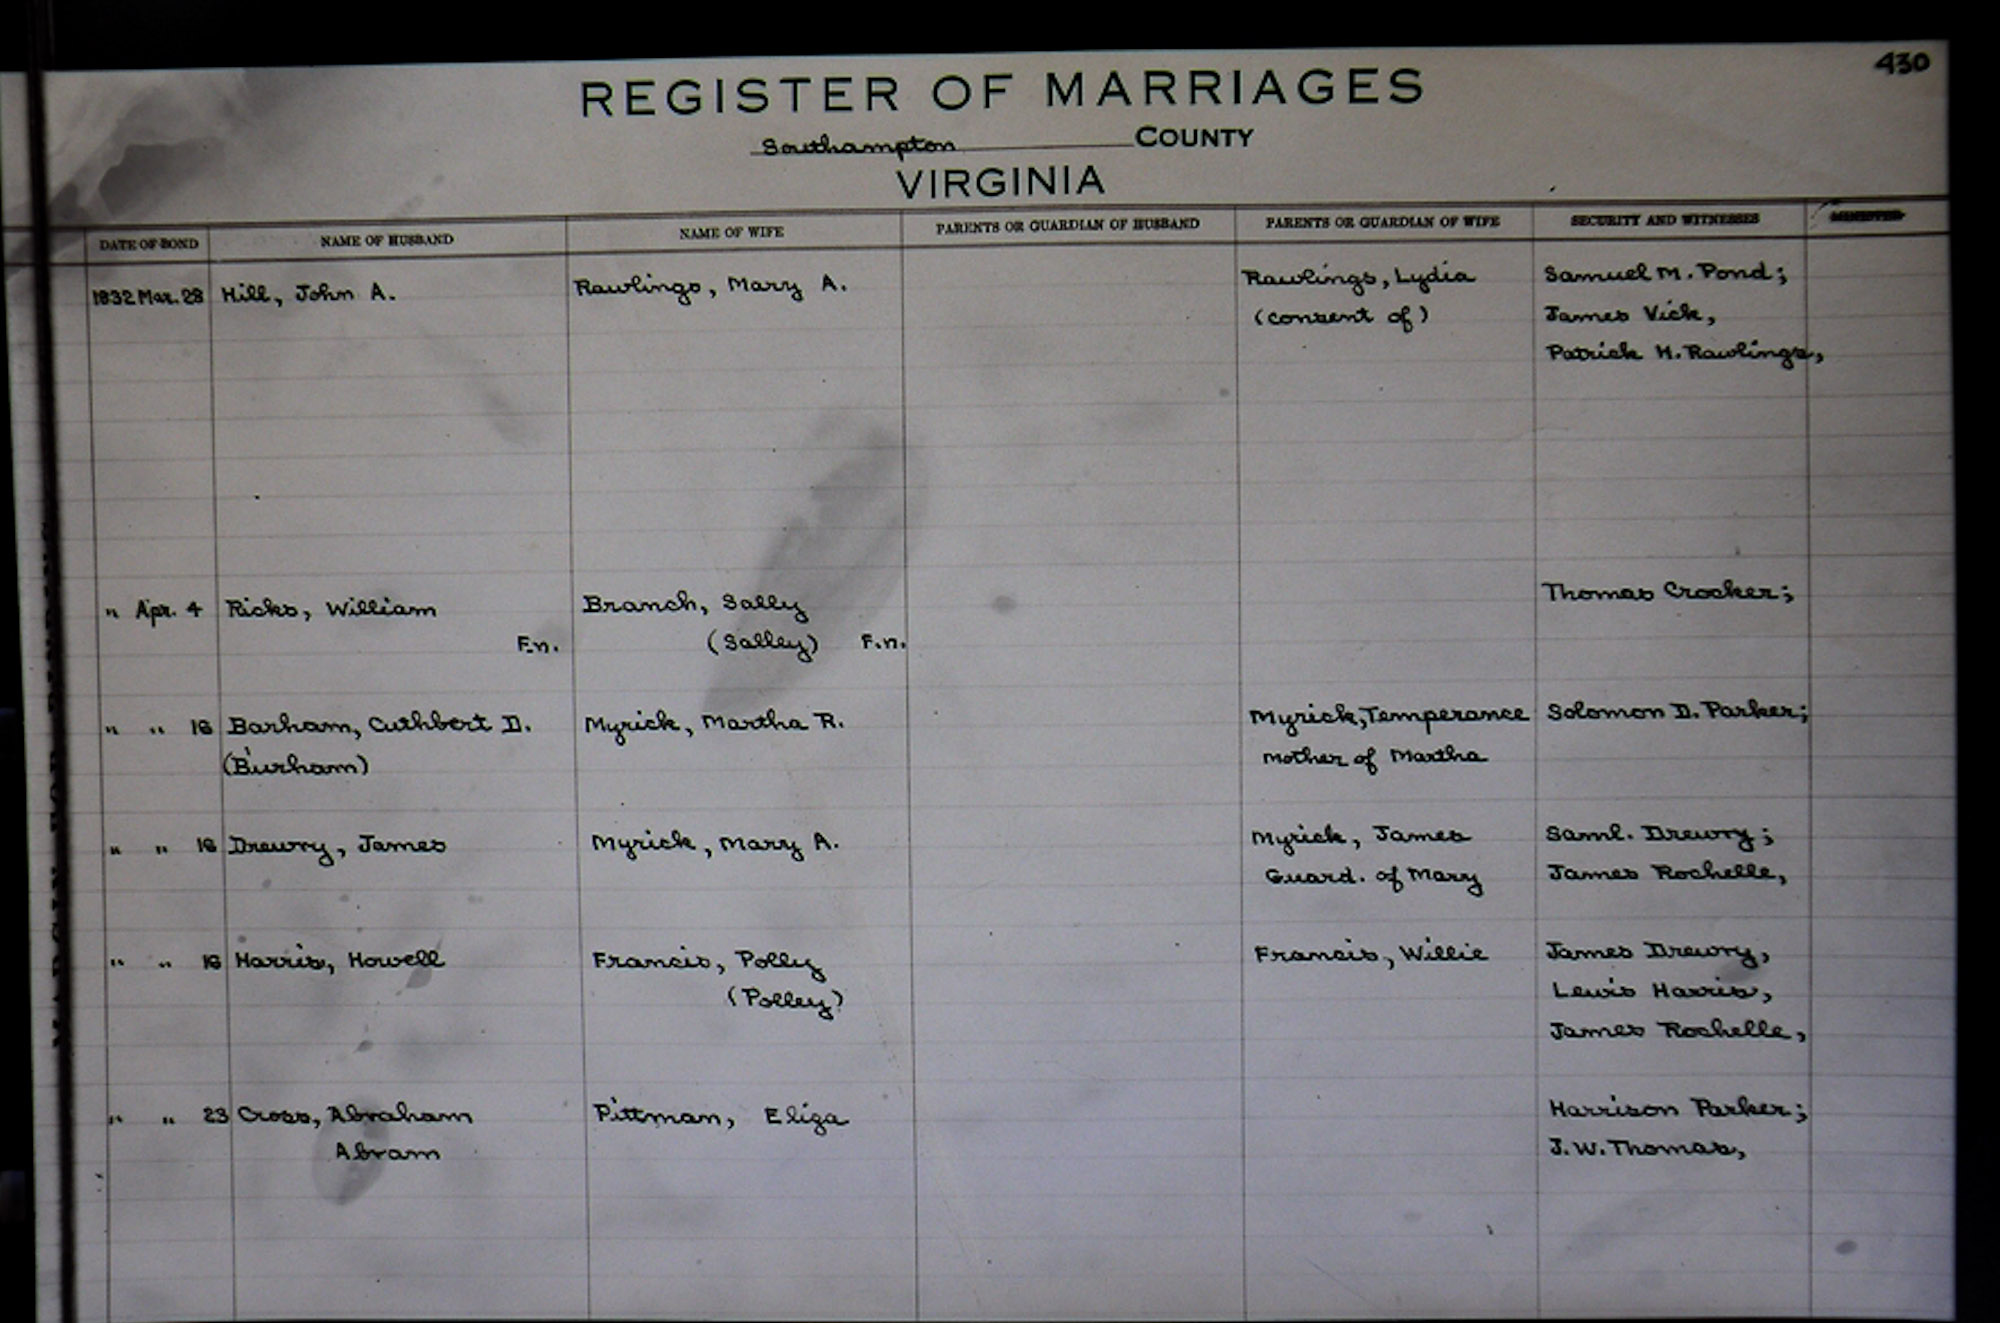 430
REGISTER OF MARRIAGES
Southampton COUNTY
VIRGINIA
DATE OF BOND NAME OF HUSBAND NAME OF WIFE PARENTS OR GUARDIAN OF HUSBAND PARENTS OR GUARDIAN OF WIFE SECURITY AND WITNESSES MINISTER
1832 Mar. 28 Hill, John A. Rawlings, Mary A. Rawlings, Lydia Samuel M. Pond;
(consent of) James Vick,
Patrick H. Rawlings,
" Apr. 4 Ricks, William Branch, Sally Thomas Crocker;
F.n. (Salley) F.n.
" " 16 Barham, Cuthbert D. Myrick, Martha R. Myrick, Temperance Solomon D. Parker;
(Burham) mother of Martha
" " 16 Drewry, James Myrick, Mary A. Myrick, James Saml. Drewry;
Guard. of Mary James Rochelle,
" " 16 Harris, Howell Francis, Polly Francis, Willie James Drewry,
(Polley) Lewis Harris,
James Rochelle,
" " 23 Cross, Abraham Pittman, Eliza Harrison Parker;
Abram J. W. Thomas,